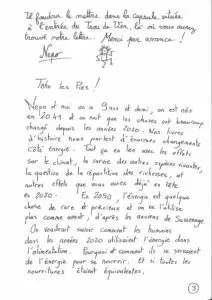 Il faudra le mettre dans la capsule située
à l'entrée du Trou du Ver, là où vous aurez
trouvé notre lettre... Merci par avance !
Nepo
Tibo les Pies !
Nepo et moi on a 9 ans et demi, on est nés
en 2041 et on sait que les choses ont beaucoup
changé depuis les années 2020. Nos livres
d'histoire nous parlent d'énormes changements
côté énergie. Tout ça en lien avec les effets
sur le climat, la survie des autres espèces vivantes,
la question de la répartition des richesses, et
autres effets que vous avez déjà en tête
en 2020. En 2050, l'énergie est quelque
chose de rare et précieux et on ne l'utilise
plus comme avant, d'après les anciens de Sassenage.
On voudrait savoir comment les humains
dans les années 2020 utilisaient l'énergie dans
l'alimentation. Pourquoi et comment ils se servaient
de l'énergie pour se nourrir. Et si toutes les
nourritures étaient équivalentes.
3